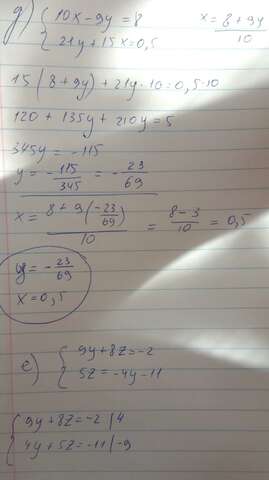 д) { 10x - 9y = 8    x = (8 + 9y)/10
{ 21y + 15x = 0,5
15(8 + 9y) + 21y · 10 = 0,5 · 10
120 + 135y + 210y = 5
345y = -115
y = -115/345 = -23/69
x = (8 + 9(-23/69))/10 = (8 - 3)/10 = 0,5
y = -23/69
x = 0,5
е) { 9y + 8z = -2
{ 5z = -4y - 11
{ 9y + 8z = -2 | 4
{ 4y + 5z = -11 | -9